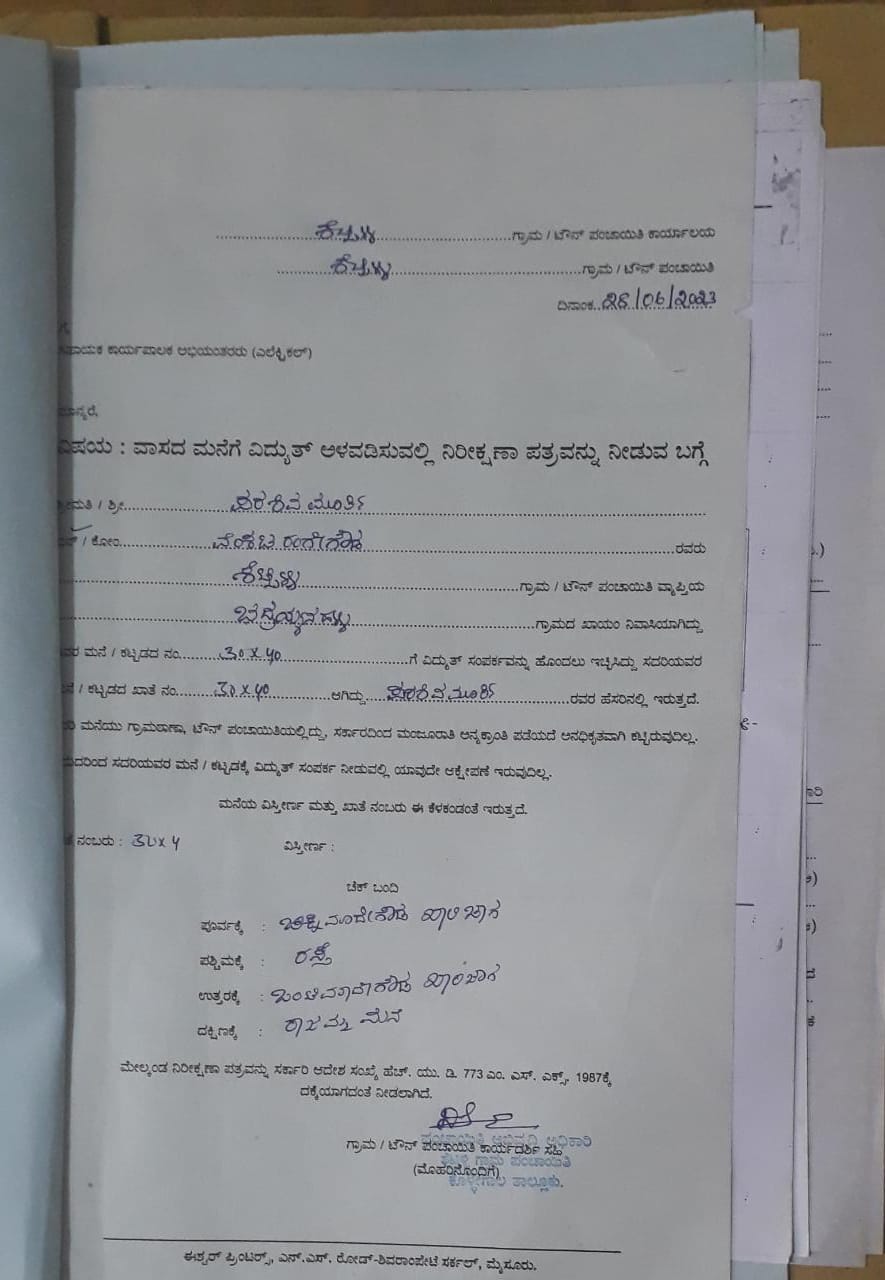 .......................ಕೆಚ್ಚಳ್ಳಿ...............................ಗ್ರಾಮ / ಟೌನ್ ಪಂಚಾಯಿತಿ ಕಾರ್ಯಾಲಯ
..............ಗ್ರಾಮ / ಟೌನ್ ಪಂಚಾಯಿತಿ
ದಿನಾಂಕ..28/06/2023
ಕಾರ್ಯಪಾಲಕ ಅಭಿಯಂತರರು (ಎಲೆಕ್ಟ್ರಿಕಲ್)
ಮಾನ್ಯರೆ,
ವಿಷಯ : ವಾಸದ ಮನೆಗೆ ವಿದ್ಯುತ್ ಅಳವಡಿಸುವಲ್ಲಿ ನಿರೀಕ್ಷಣಾ ಪತ್ರವನ್ನು ನೀಡುವ ಬಗ್ಗೆ
/ ಶ್ರೀ.................ಪರಶಿವ ಮೂರ್ತಿ
/ ಕೋಂ...............ವೆಂಕಟರಂಗೇಗೌಡ...............ರವರು
...............ಗ್ರಾಮ / ಟೌನ್ ಪಂಚಾಯಿತಿ ವ್ಯಾಪ್ತಿಯ
...............ಗ್ರಾಮದ ಖಾಯಂ ನಿವಾಸಿಯಾಗಿದ್ದು
ಮನೆ / ಕಟ್ಟಡದ ನಂ.......30 x 40...............ಗೆ ವಿದ್ಯುತ್ ಸಂಪರ್ಕವನ್ನು ಹೊಂದಲು ಇಚ್ಛಿಸಿದ್ದು ಸದರಿಯವರ
/ ಕಟ್ಟಡದ ಖಾತೆ ನಂ.......30 x 40............ಆಗಿದ್ದು....ಪರಶಿವ ಮೂರ್ತಿ............ರವರ ಹೆಸರಿನಲ್ಲಿ ಇರುತ್ತದೆ.
ಮನೆಯು ಗ್ರಾಮಠಾಣಾ, ಟೌನ್ ಪಂಚಾಯಿತಿಯಲ್ಲಿದ್ದು, ಸರ್ಕಾರದಿಂದ ಮಂಜೂರಾತಿ ಅನ್ಯಕ್ರಾಂತಿ ಪಡೆಯದೆ ಅನಧಿಕೃತವಾಗಿ ಕಟ್ಟಿರುವುದಿಲ್ಲ.
ಸದರಿಯವರ ಮನೆ / ಕಟ್ಟಡಕ್ಕೆ ವಿದ್ಯುತ್ ಸಂಪರ್ಕ ನೀಡುವಲ್ಲಿ ಯಾವುದೇ ಆಕ್ಷೇಪಣೆ ಇರುವುದಿಲ್ಲ.
ಮನೆಯ ವಿಸ್ತೀರ್ಣ ಮತ್ತು ಖಾತೆ ನಂಬರು ಈ ಕೆಳಕಂಡಂತೆ ಇರುತ್ತದೆ.
ನಂಬರು : 30 x 4 ವಿಸ್ತೀರ್ಣ :
ಚೆಕ್ ಬಂದಿ
ಪೂರ್ವಕ್ಕೆ : ಖಾಲಿ ಜಾಗ
ಪಶ್ಚಿಮಕ್ಕೆ : ರಸ್ತೆ
ಉತ್ತರಕ್ಕೆ : ಖಾಲಿ ಜಾಗ
ದಕ್ಷಿಣಕ್ಕೆ : ರಾಜಮ್ಮ ಮನೆ
ಮೇಲ್ಕಂಡ ನಿರೀಕ್ಷಣಾ ಪತ್ರವನ್ನು ಸರ್ಕಾರಿ ಆದೇಶ ಸಂಖ್ಯೆ ಹೆಚ್. ಯು. ಡಿ. 773 ಎಂ. ಎಸ್. ಎಕ್ಸ್. 1987ಕ್ಕೆ
ದಕ್ಕೆಯಾಗದಂತೆ ನೀಡಲಾಗಿದೆ.
ಪಂಚಾಯಿತಿ ಅಭಿವೃದ್ಧಿ ಅಧಿಕಾರಿ
ಗ್ರಾಮ / ಟೌನ್ ಪಂಚಾಯಿತಿ ಕಾರ್ಯದರ್ಶಿ ಸಹಿ
ಗ್ರಾಮ ಪಂಚಾಯಿತಿ
(ಮೊಹರಿನೊಂದಿಗೆ)
ಕೊಳ್ಳೇಗಾಲ ತಾಲ್ಲೂಕು.
ಈಶ್ವರ್ ಪ್ರಿಂಟರ್ಸ್, ಎನ್.ಎಸ್. ರೋಡ್-ಶಿವರಾಂಪೇಟೆ ಸರ್ಕಲ್, ಮೈಸೂರು.